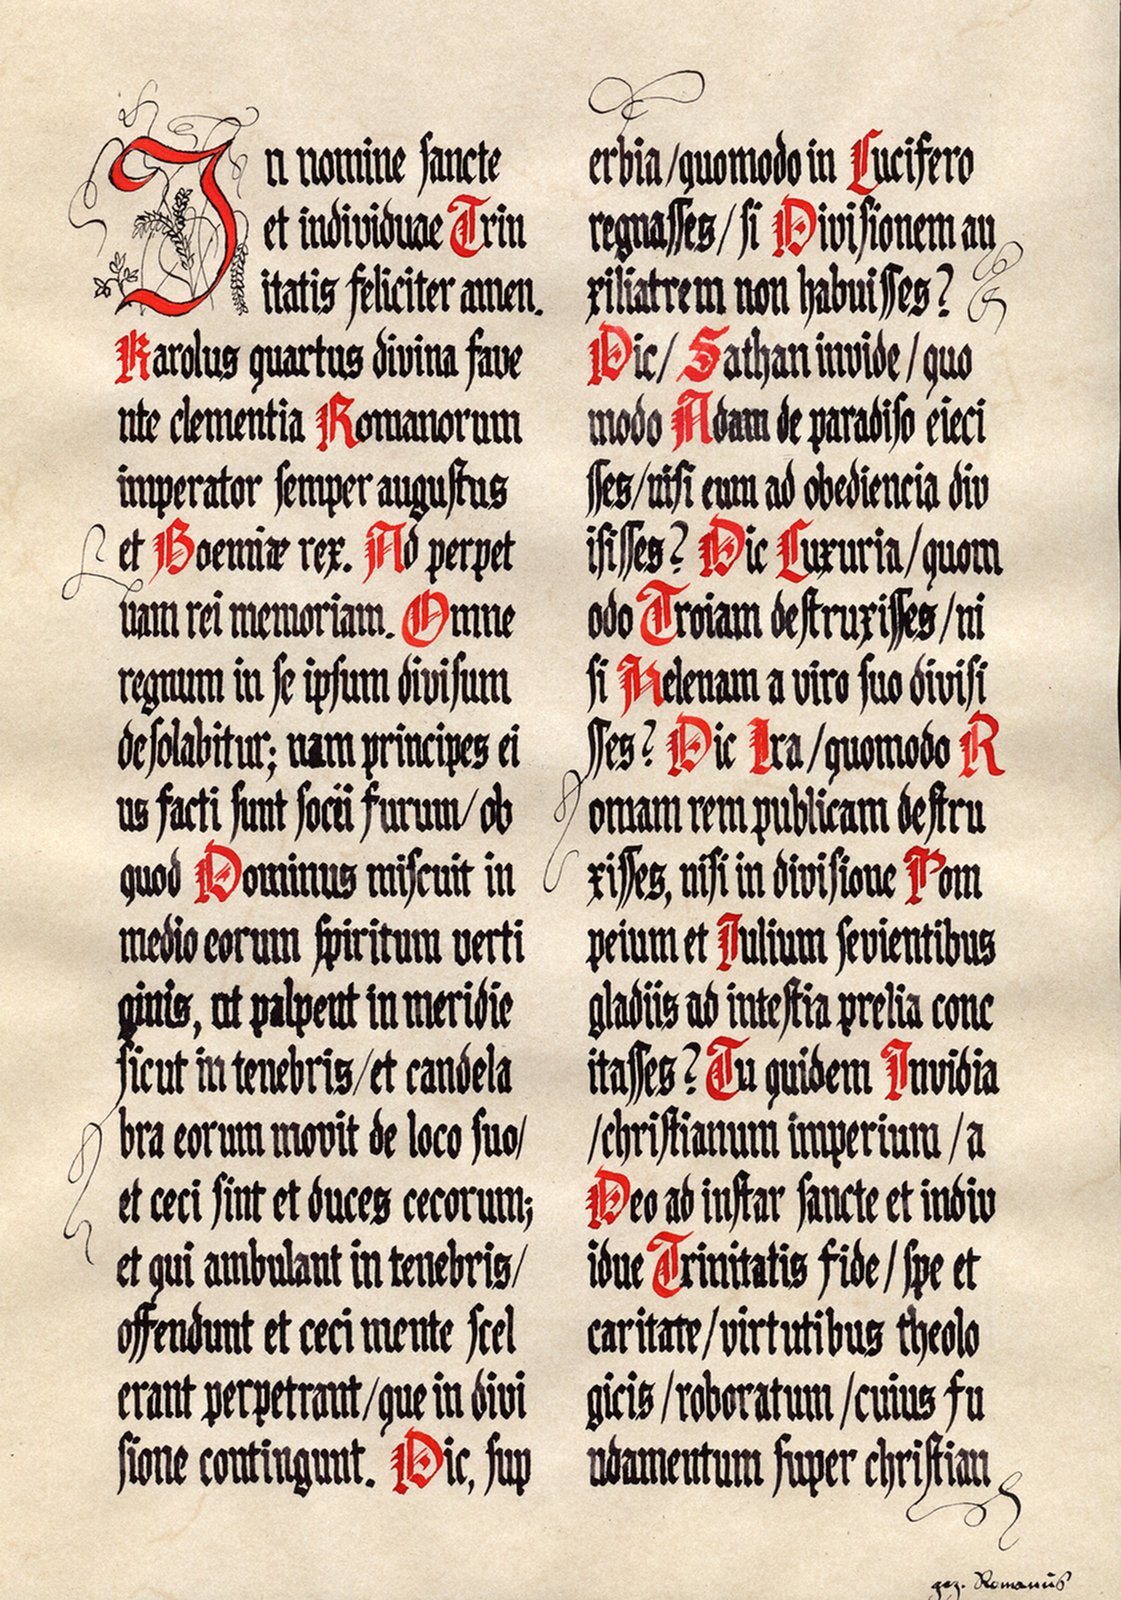 In nomine sancte
et individuae Trin
itatis feliciter amen.
Karolus quartus divina fave
nte clementia Romanorum
imperator semper augustus
et Boemiæ rex. Ad perpet
uam rei memoriam. Omne
regnum in se ipsum divisum
desolabitur; nam principes ei
us facti sunt socii furum/ob
quod Dominus miscuit in
medio eorum spiritum verti
ginis, ut palpent in meridie
sicut in tenebris/et candela
bra eorum movit de loco suo/
et ceci sint et duces cecorum;
et qui ambulant in tenebris/
offendunt et ceci mente scel
erant perpetrant/que in divi
sione contingunt. Dic, sup
erbia/quomodo in Lucifero
regnasses/si Divisionem au
xiliatrem non habuisses?
Dic/Sathan invide/quo
modo Adam de paradiso eieci
sses/nisi eum ad obediencia div
isisses? Dic Luxuria/quom
odo Troiam destruxisses/ni
si Helenam a viro suo divisi
sses? Dic Ira/quomodo R
omam rem publicam destru
xisses, nisi in divisione Pom
peium et Iulium sevientibus
gladiis ad intestia prelia conc
itasses? Tu quidem Invidia
/christianum imperium/a
Deo ad instar sancte et indiv
idue Trinitatis fide/spe et
caritate/virtutibus theolo
gicis/roboratum/cuius fu
ndamentum super christian
gez. Romanus